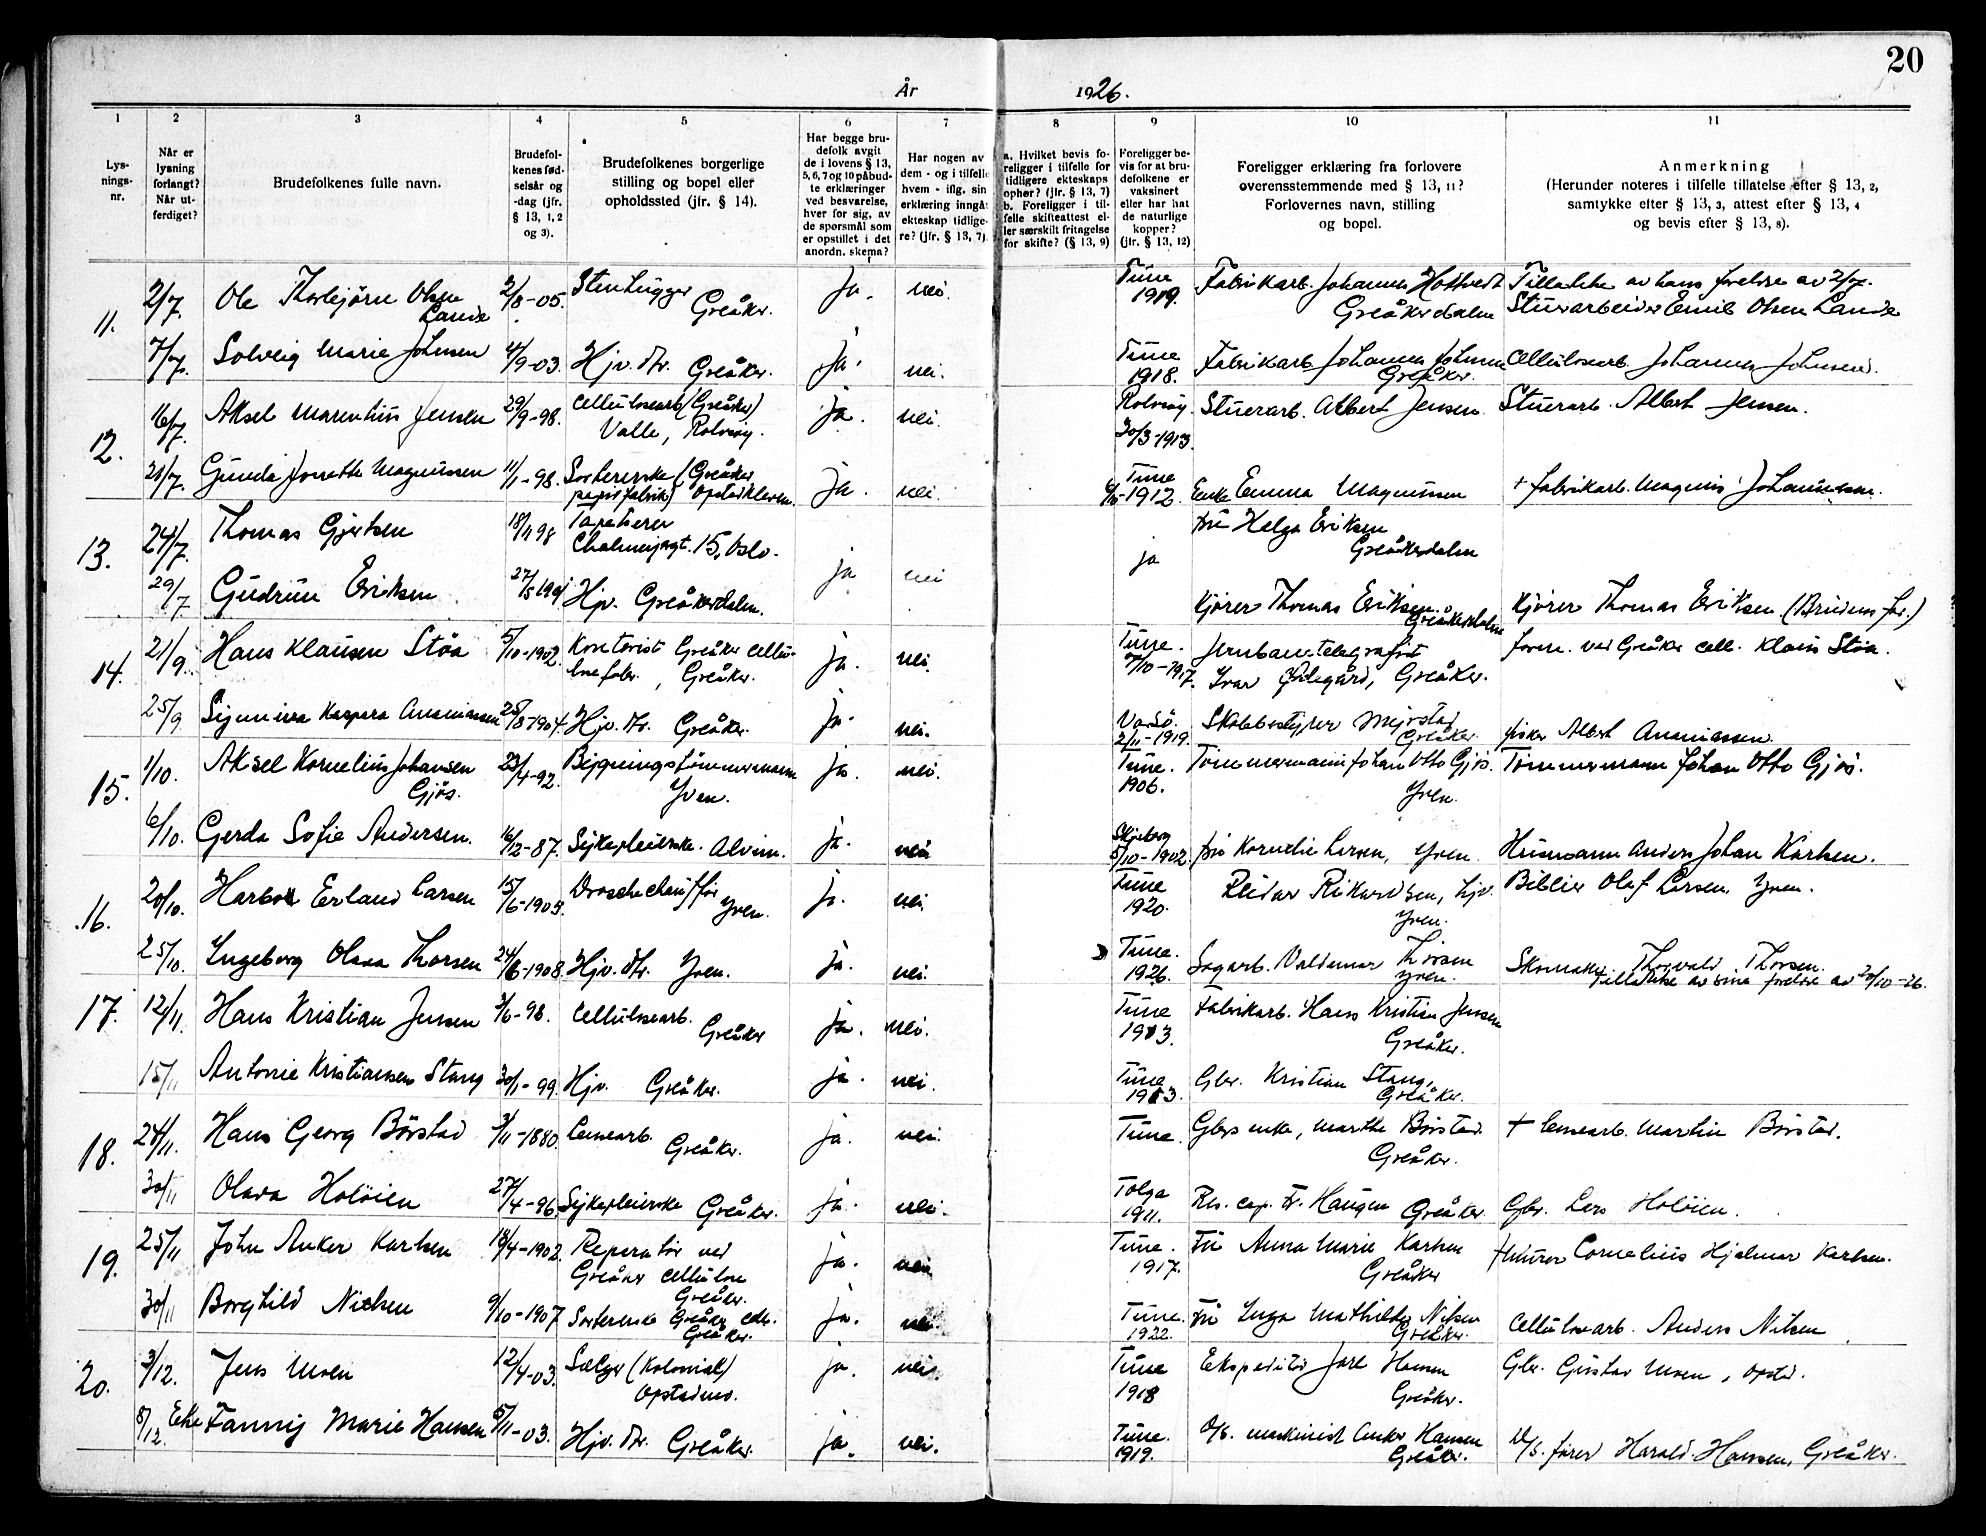 20
År 1926.
1 2 3 4 5 6 7 8 9 10 11
Lys-
nings-
nr.
Når er
lysning
forlangt?
Når ut-
ferdiget?
Brudefolkenes fulle navn.
Brudefol-
kenes fød-
selsår og
-dag (jfr.
§ 13, 1, 2
og 3).
Brudefolkenes borgerlige
stilling og bopel eller
opholdssted (jfr. § 14).
Har begge bru-
defolk avgit
de i lovens § 13,
5, 6, 7 og 10 påbud-
te erklæringer
ved besvarelse,
hver for sig, av
de spørsmål som
er opstillet i det
anordn. skema?
Har nogen av
dem - og i tilfelle
hvem - iflg. sin
erklæring inngåt
ekteskap tidlige-
re? (jfr. § 13, 7).
a. Hvilket bevis fo-
religger i tilfelle for
tidligere ekteskaps
ophør? (jfr. § 13, 7)
b. Foreligger i til-
felle skifteattest el-
ler særskilt fritagelse
for skifte? (§ 13, 9)
Foreligger be-
vis for at bru-
defolkene er
vaksinert
eller har hat
de naturlige
kopper?
(jfr. § 13, 12)
Foreligger erklæring fra forlovere
overensstemmende med § 13, 11?
Forlovernes navn, stilling
og bopel.
Anmerkning
(Herunder noteres i tilfelle tillatelse efter § 13, 2,
samtykke efter § 13, 3, attest efter § 13, 4
og bevis efter § 13, 8).
11. 2/7. Ole Thorbjørn Olsen 2/8-05. Stenhugger ja. nei. Tune Fabrikarb. Johannes Tillatelse av hans foreldre av 2/7.
Lande Greåker. 1919. Greåkerdalen Stuerarbeider Emil Olsen Lande
7/7. Solveig Marie Johnsen 4/9-03. Hjv. dtr. Greåker. ja. nei. Tune 1918. Fabrikarb. Johannes Johnsen Greåker. Cellulosearb. Johannes Johnsen.
12. 16/7. Aksel Marentius Jensen 29/9-98. Cellulosearb. (Greåker) ja. nei. Rolvsøy Stuerarb. Albert Jensen. Stuerarb. Albert Jensen.
Valle, Rolvsøy. 30/3-1913.
21/7. Gunda Josette Magnussen 11/1-98. Sortererske (Greåker ja. nei. Tune 1912. Enke Emma Magnussen + fabrikarb. Magnus Johannesen.
papirfabrik)
13. 24/7. Thomas Gjertsen 18/11 98 Tapetserer ja nei ja fru Helga Eriksen
15, Oslo. Greåkerdalen
29/7 Gudrun Eriksen 27/5 1901 Hjv. Greåkerdalen. Kjører Thomas Eriksen. Greåkerdalen Kjører Thomas Eriksen (Brudens far.)
14. 21/9. Hans Klausen Støa 5/10-1902. Kontorist Greåker cellu- ja. nei. Tune. Jernbanetelegrafist form. ved Greåker cell. Klaus Støa.
losefabr., Greåker. 7/10-1917. Ivar Ødegård, Greåker.
25/9 Signera Kaspara Ananiassen 25/8-1904. Hjv. dtr. Greåker. ja. nei. 2/11-1919. Skobestyrer Greåker. fisker Albert Ananiassen.
15. 1/10. Aksel Kornelius Johansen 23/4-92. Bygningstømmermann ja. nei. Tune. Tømmermann Johan Otto Gjøs. Tømmermann Johan Otto Gjøs.
Gjøs. Yven. 1906. Yven.
6/10. Gerda Sofie Andersen. 16/12-87. Sykepleierske. Alvim. ja. nei Skjeberg 5/10-1902. fru Kornelie Larsen, Yven. Husmann Anders Johan Karlsen.
16. 20/10. Erland Larsen 15/6-1903. Droschechauffør Yven. ja. nei. Tune 1920. Reidar Rikardsen, hjv. Yven. Olaf Larsen, Yven.
25/10. Ingeborg Olava Thorsen 24/6-1908. Hjv. dtr. Yven. ja. nei. Tune. 1926. Sagarb. Valdemar Thorsen Yven. Skomaker Thorvald Thorsen.
Tillatelse av sine foreldre av 20/10-26.
17. 12/11. Hans Kristian Jensen 3/6-98. Cellulosearb. Greåker ja. nei. Tune 1913. Fabrikarb. Hans Kristian Jensen Greåker.
15/11 Antonie Kristiansen Stang 30/1-99. Hjv. Greåker. ja. nei. Tune 1913. Gbr. Kristian Stang, Greåker.
18. 24/11. Hans Georg Børstad 3/11-1880. Lensearb. Greåker. ja. nei. Tune. Gbrs enke, Marthe Børstad. Greåker. + lensearb. Martin Børstad.
30/11 Olava Holøien 27/4-96. Sykepleierske Greåker. ja. nei. Tolga 1911. Res. cap. Fr. Haugen Greåker. Gbr. Lars Holøien.
19. 25/11 John Anker Karlsen 18/4-1902. Reperatør ved ja. nei. Tune. 1917. Fru Anna Marie Karlsen Greåker + Murer Cornelius Hjalmar Karlsen.
Greåker cellulose Greåker.
30/11 Borghild Nielsen 9/10-1907 Sortererske Greåker cell. Greåker. ja. nei. Tune. 1922. Fru Inga Mathilde Nilsen Greåker. Cellulosearb. Anders Nilsen.
20. 3/12. Jens Moen 12/4-03. Selger (Kolonial) ja. nei. Tune 1918 Ekspeditør Jarl Hansen Greåker. Gbr. Gustav Moen, Opstd.
8/12. Fanny Marie Hansen 5/11-03. Hjv. dtr. Greåker. ja. nei. Tune. 1919. D/S. maskinist Anker Hansen Greåker. D/S. fører Harald Hansen, Greåker.